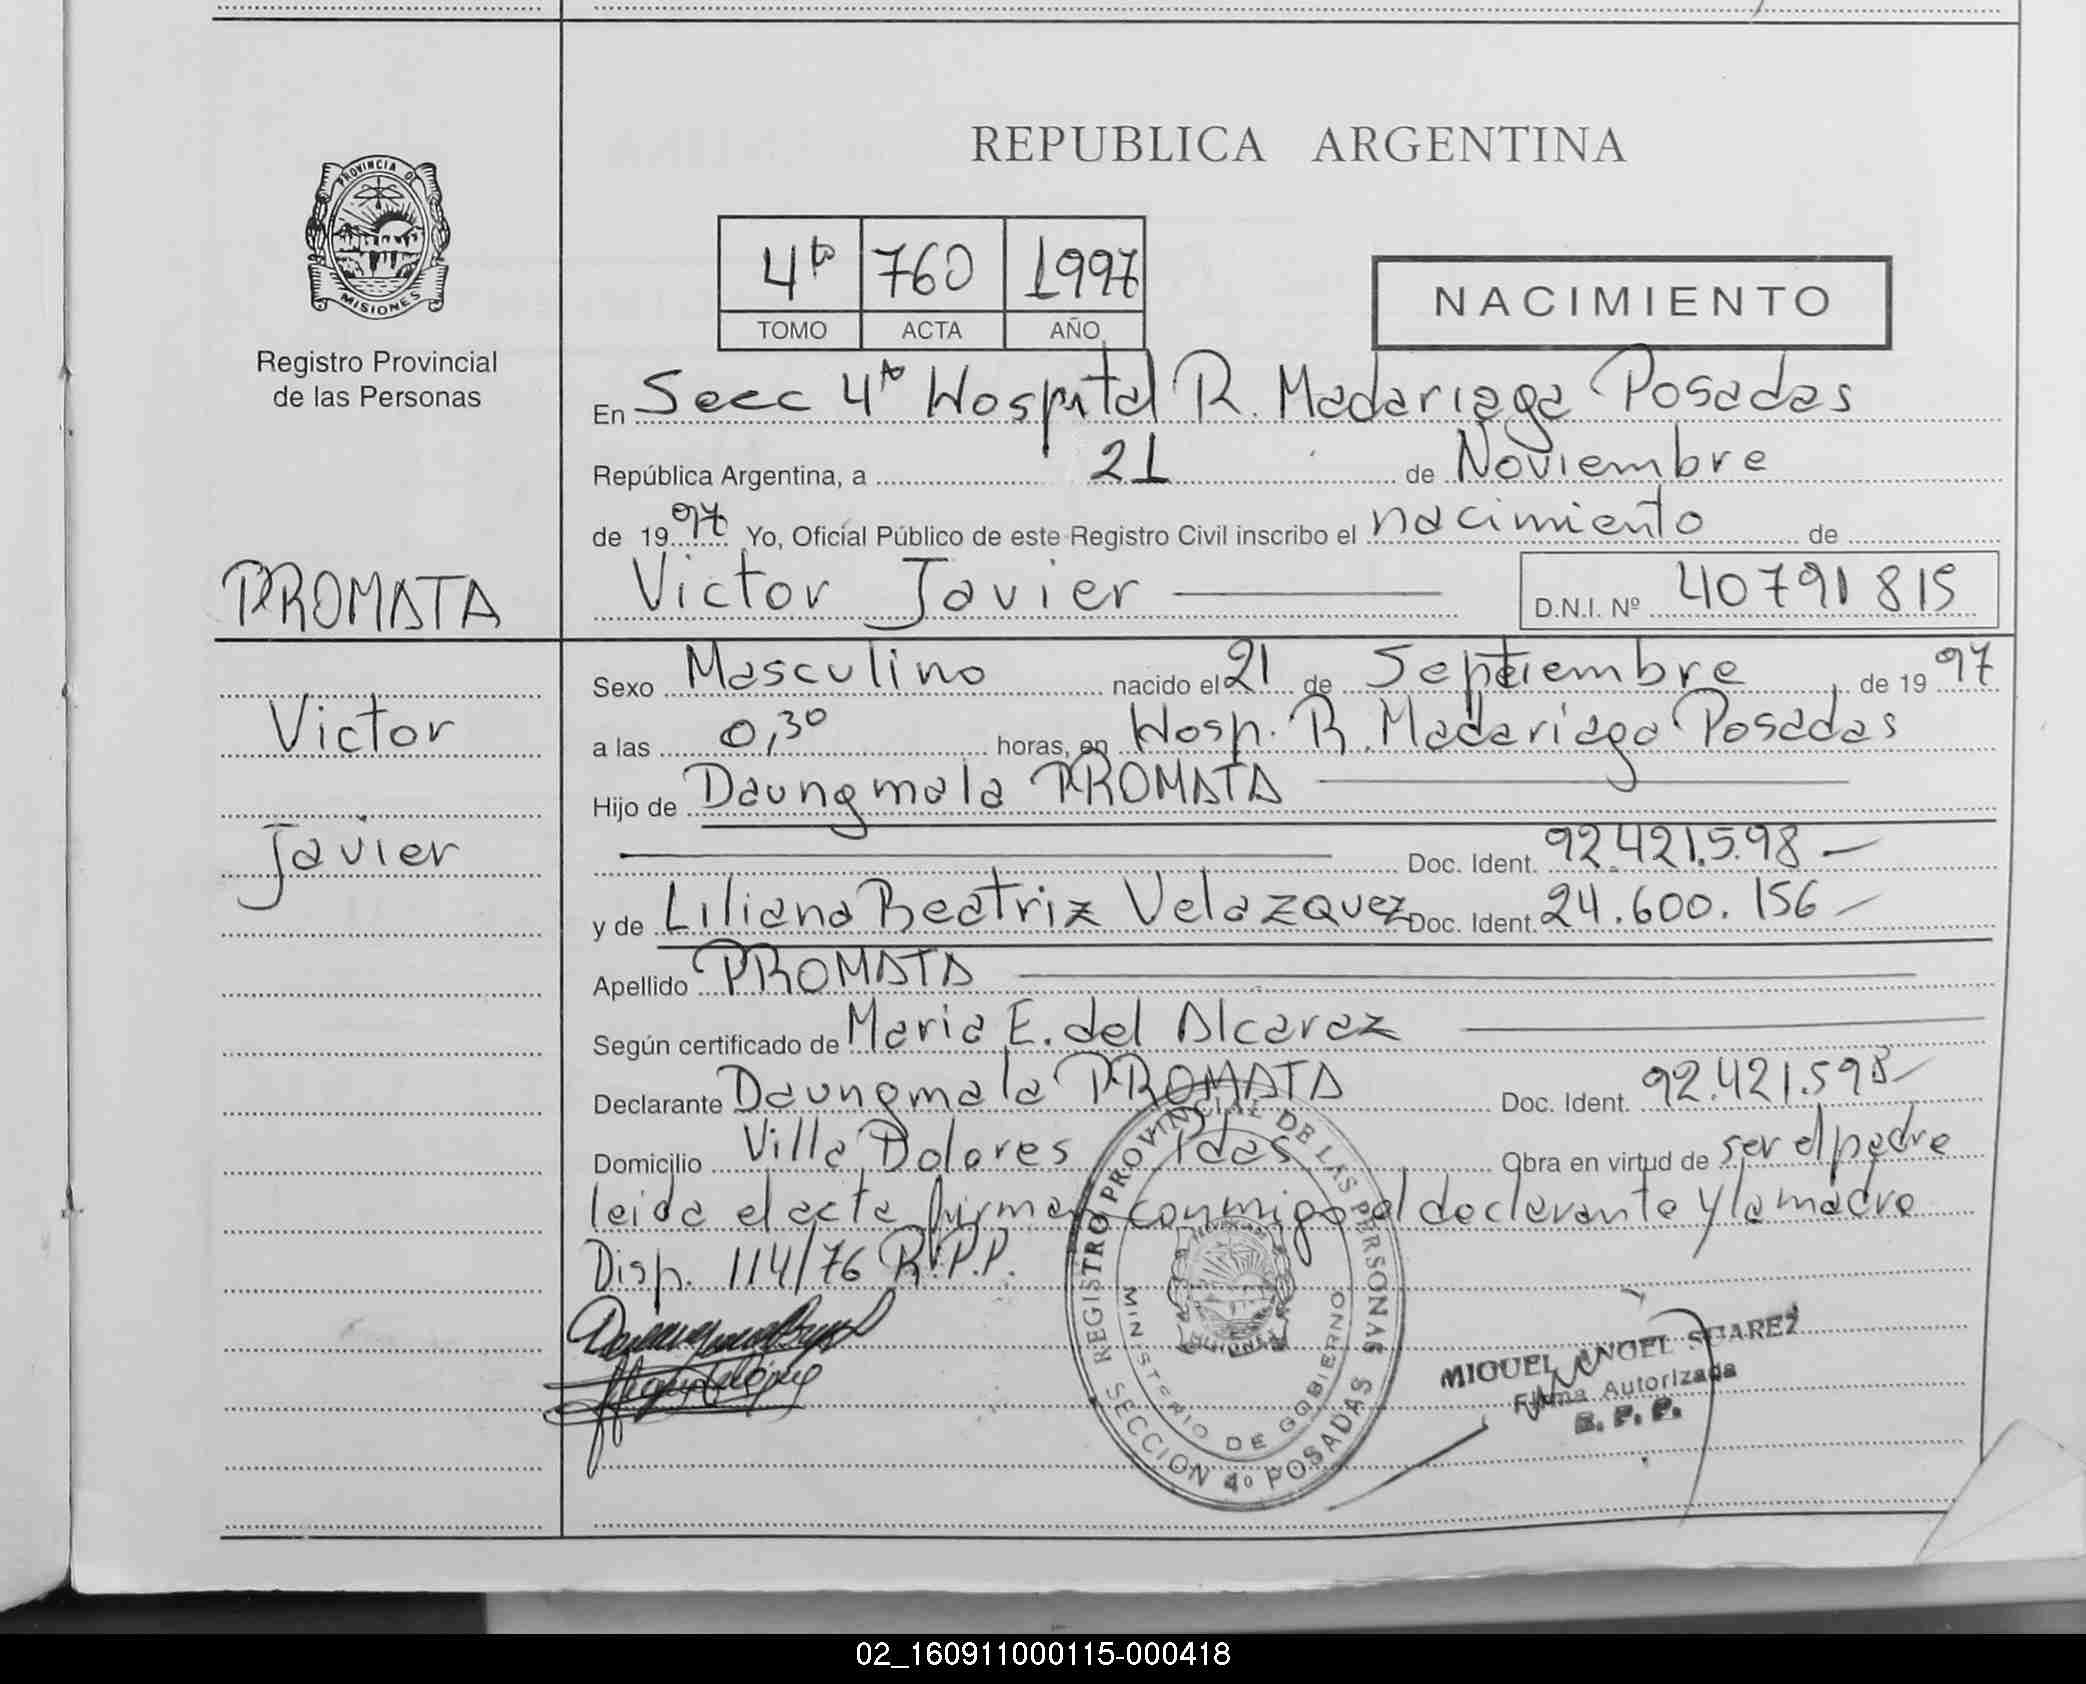 REPUBLICA ARGENTINA
PROVINCIA DE
MISIONES
Registro Provincial
de las Personas
4to 760 1997
TOMO ACTA AÑO
NACIMIENTO
En Secc 4ta Hospital R. Madariaga Posadas
República Argentina, a 21 de Noviembre
de 1997 Yo, Oficial Público de este Registro Civil inscribo el nacimiento de
PROMATA
Victor Javier
D.N.I. Nº 40791815
Victor
Javier
Sexo Masculino nacido el 21 de Septiembre de 1997
a las 0,30 horas, en Hosp. R. Madariaga Posadas
Hijo de Daungmala PROMATA
Doc. Ident. 92.421.598
y de Liliana Beatriz Velazquez Doc. Ident. 24.600.156
Apellido PROMATA
Según certificado de Maria E. del Alcaraz
Declarante Daungmala PROMATA Doc. Ident. 92.421.598
Domicilio Villa Dolores Pdas Obra en virtud de ser el padre
leida el acta firman conmigo el declarante y la madre
Disp. 114/76 R.P.P.
REGISTRO PROVINCIAL DE LAS PERSONAS
MINISTERIO DE GOBIERNO
SECCION 4º POSADAS
MIGUEL ANGEL SUAREZ
Firma Autorizada
R. P. P.
02_160911000115-000418